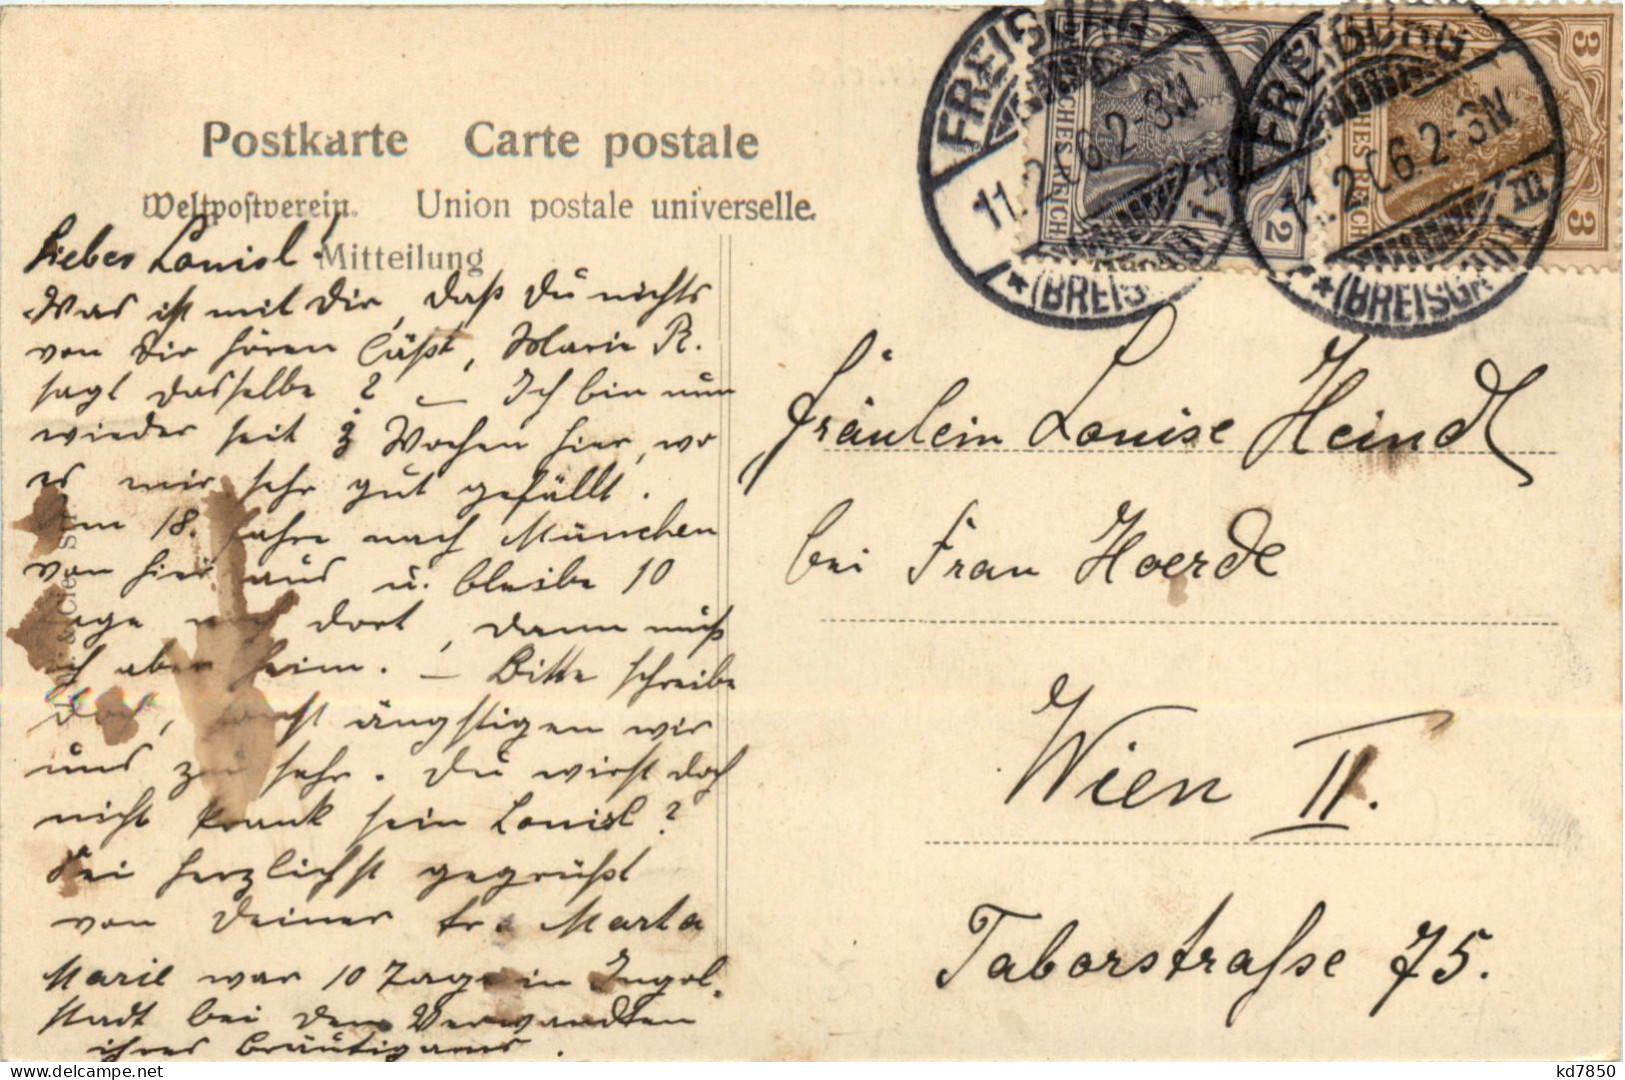 Postkarte Carte postale
Weltpostverein. Union postale universelle.
Mitteilung
Liebes Louisl!
Was ist mit Dir, daß Du nichts
von Dir hören läßt, Marie R.
sagt dasselbe? – Ich bin nun
wieder seit 3 Wochen hier, wo
es mir sehr gut gefällt.
Am 18. fahre nach München
von hier aus u. bleibe 10
Tage noch dort, dann muß
ich aber heim. – Bitte schreibe
doch, sonst ängstigen wir
uns zu sehr. Du wirst doch
nicht krank sein Louisl?
Sei herzlichst gegrüßt
von Deiner tr. Marta
Marie war 10 Tage in Ingol-
stadt bei den Verwandten
ihres Bräutigams.
& Cie
FREIBURG
11.2.06.2-3N
(BREISG
1
2
CHES REICH
FREIBURG
11.2.06.2-3N
(BREISGAU) 1
3
3
CHES REICH
Fräulein Louise Heindl
bei Frau Hoerde
Wien II.
Taborstrasse 75.
kd7850